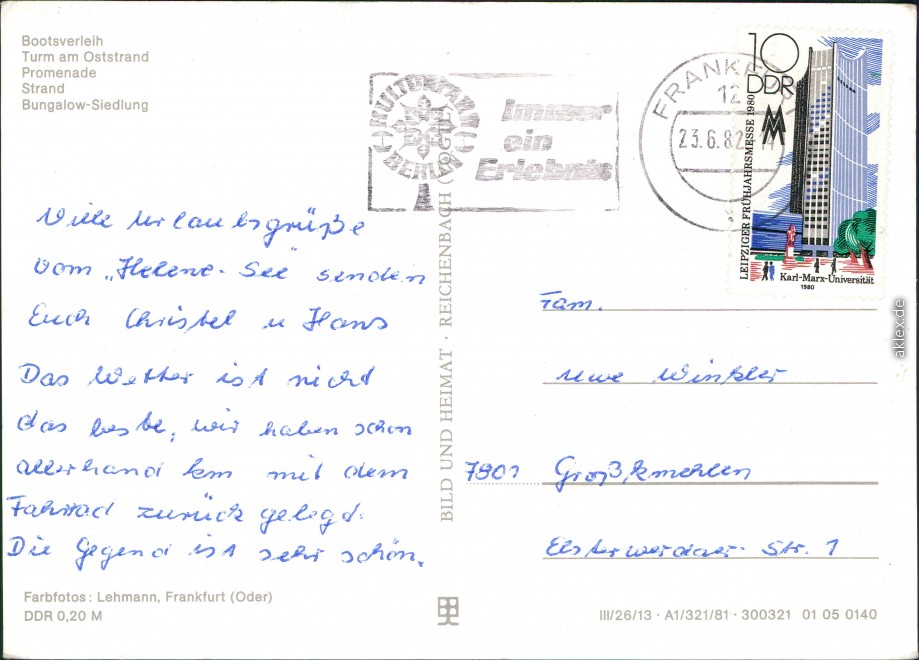 Bootsverleih
Turm am Oststrand
Promenade
Strand
Bungalow-Siedlung
KULTURPARK
BERLIN
Immer
ein
Erlebnis
FRANKFU
12
23.6.82
10
DDR
MM
LEIPZIGER FRÜHJAHRSMESSE 1980
Karl-Marx-Universität
1980
Viele Urlaubsgrüße
vom „Helene-See" senden
Euch Christel u Hans
Das Wetter ist nicht
das beste, wir haben schon
allerhand km mit dem
Fahrrad zurück gelegt.
Die Gegend ist sehr schön.
BILD UND HEIMAT · REICHENBACH (VOGTL)
Fam.
Uwe Winkler
7901 Großkmehlen
Elsterwerdaer Str. 1
Farbfotos: Lehmann, Frankfurt (Oder)
DDR 0,20 M
III/26/13 · A1/321/81 · 300321 01 05 0140
aklex.de